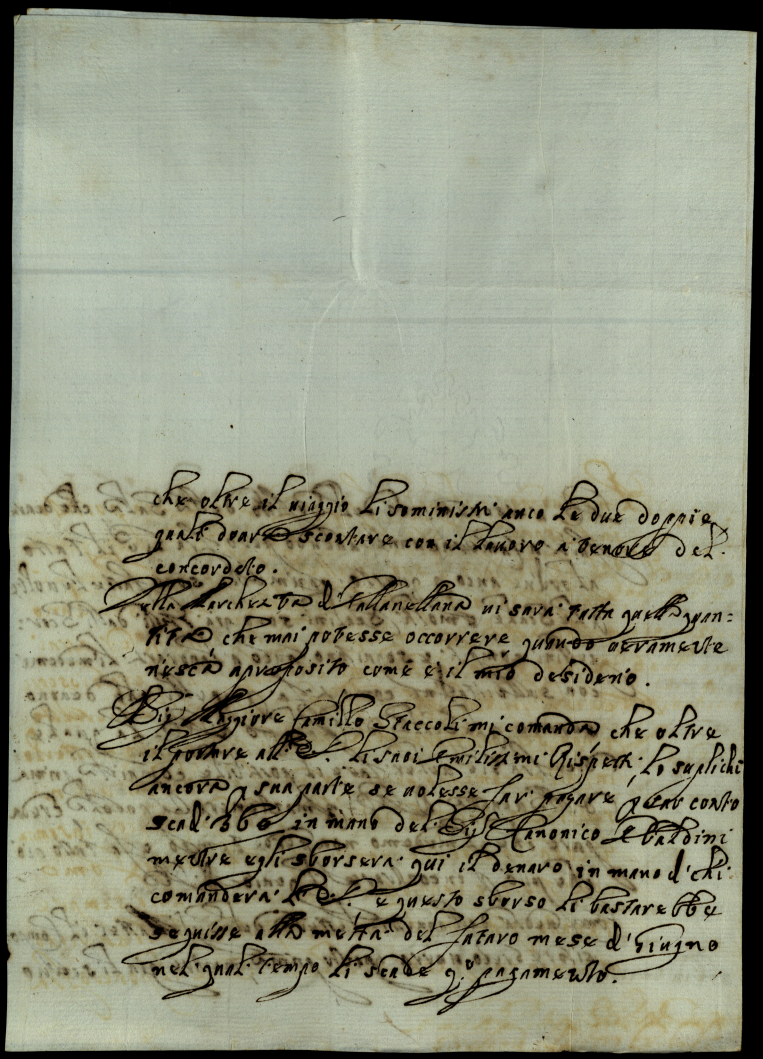 che oltre il uiaggio li sominisstri anco le due doppie
quali dourà scontare con il lauoro a tenore del
concordeto.
Della Marchesità di ui sarà fatta quella quan=
tità che mai potesse occorrere quando ueramente
riescà aproposito come è il mio desiderio.
Il Sig. Maggiore Camillo Staccoli mi comanda che oltre
il portare all S. li suoi Umilissimi Rispetti, lo suplichi
ancora p sua parte se uolesse far pagare p suo conto
scadi in mano del Sig. Canonico Vbaldini
mentre egli sborserà qui il denaro in mano d'chi
comanderà S. e questo sborso li bastarebbe
seguisse alla mettà del futuro mese d'Giugno
nel qual tempo li scade q.o pagamento.